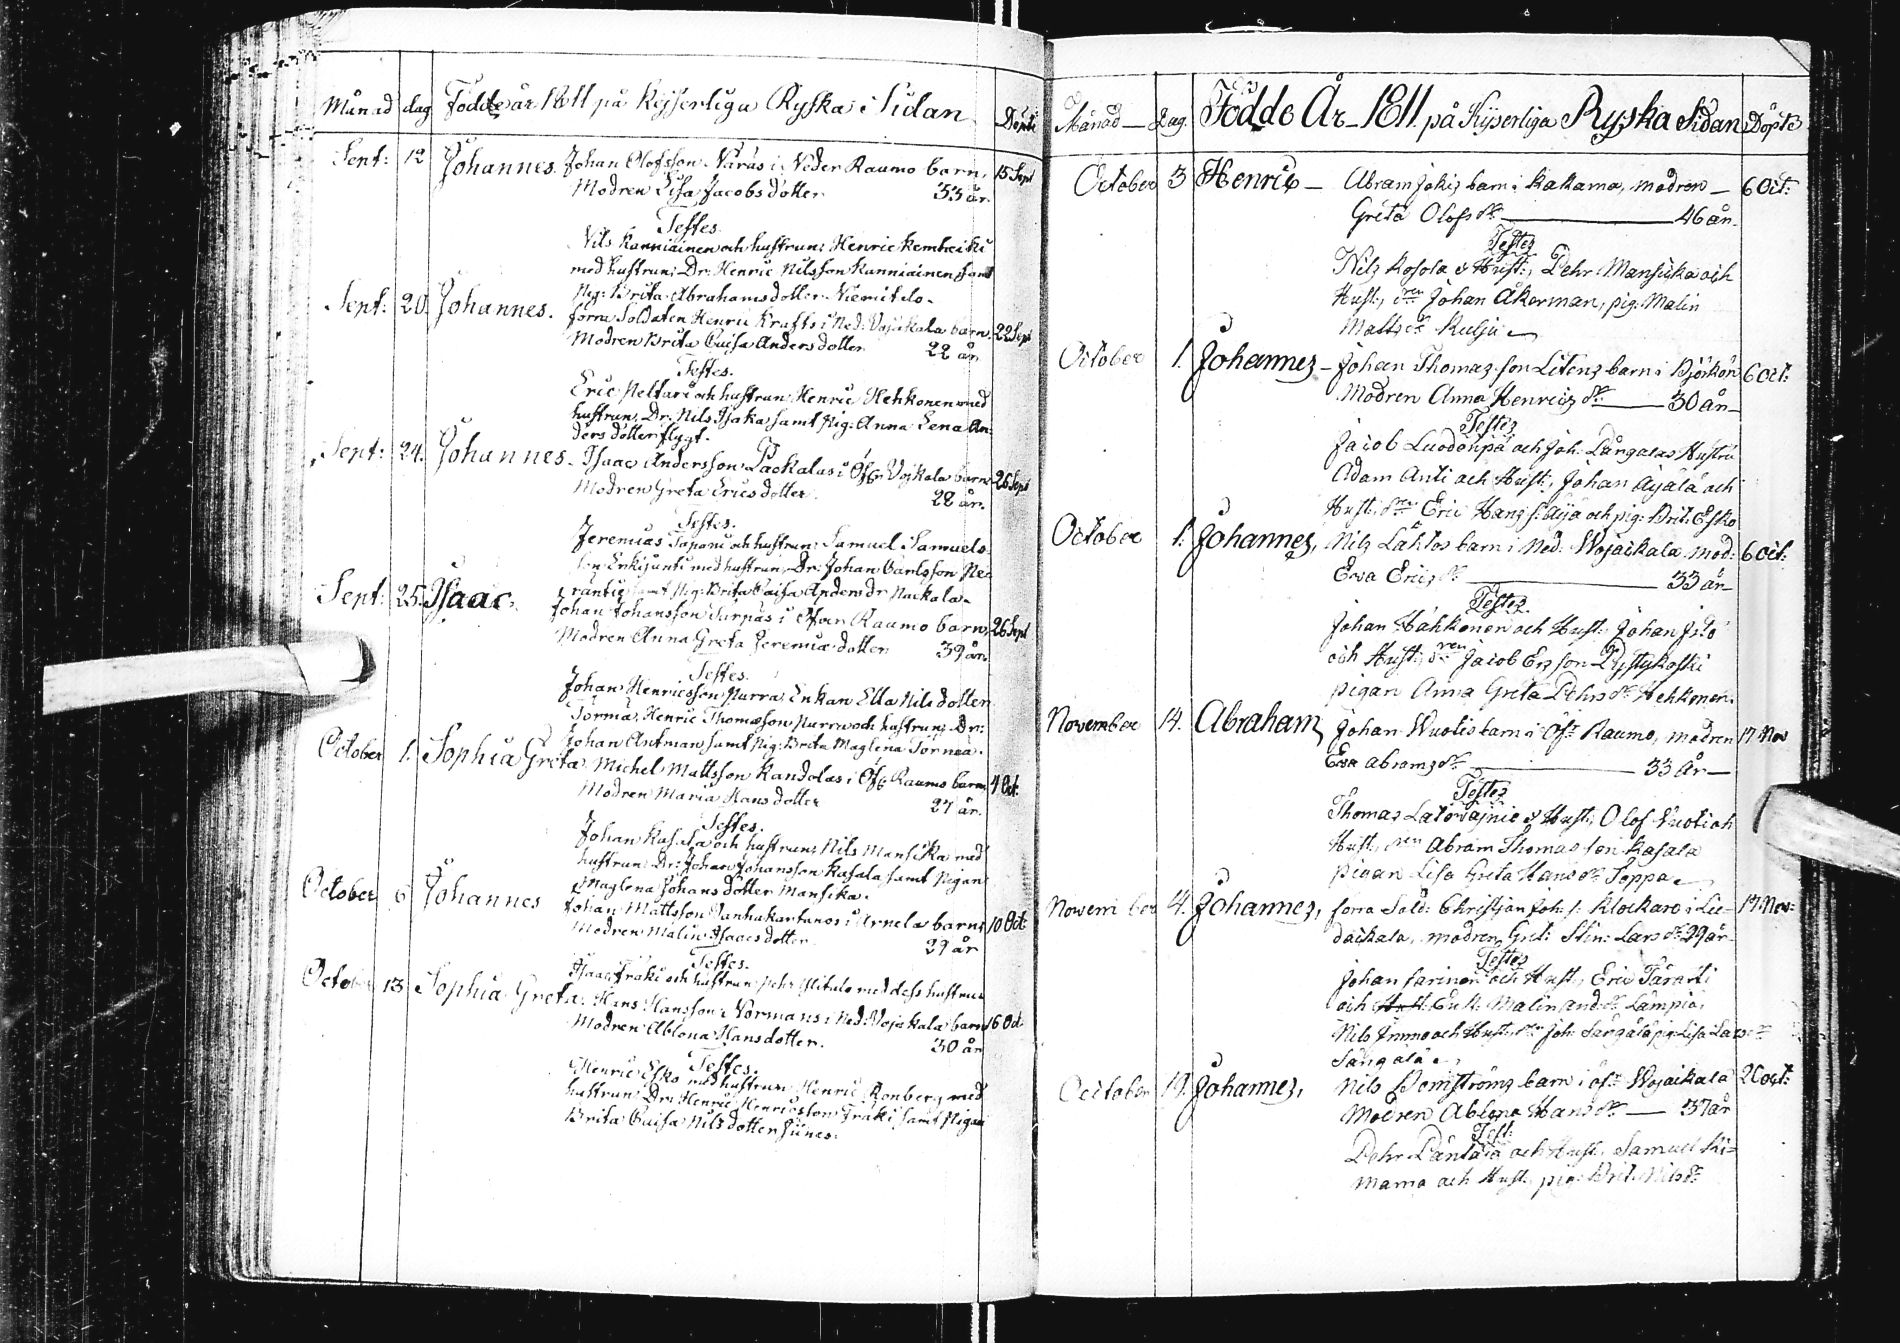 Månad dag Födde år 1811 på Keyserliga Ryska Sidan Döpte
Sept: 12 Johannes. Johan Olofsson Naras i Neder Raumo barn, 15 Sept
Modren Lisa Jacobs dotter. 33 år.
Testes.
Nils Kanniainen och hustrun; Henric Kembeicki
med hustrun; Dr: Henric Nilsson Kanniainen samt
Pig: Brita Abrahams dotter Niemitalo.
Sept: 20. Johannes. förra Soldaten Henric Krafts i Ned: Vojakala barn. 22 Sept
Modren Brita Cajsa Anders dotter 22 år.
Testes.
Eric Peltari och hustrun Henric Hehkonen med
hustrun, Dr: Nils Isaka samt Pig: Anna Lena An-
ders dotter flygt.
Sept: 24. Johannes. Isaac Andersson Packalas i Öfr Vojkala barn 26 Sept
Modren Greta Erics dotter. 28 år.
Testes.
Jeremias Toponi och hustrun; Samuel Samuels-
son Enkijunti med hustrun, Dr: Johan Carlsson
samt Pig: Brita Caisa Anders dr Nackala.
Sept: 25. Isaac. Johan Johansson Surpas i Öfver Raumo barn, 26 Sept
Modren Anna Greta Jeremiæ dotter 39 år.
Testes.
Johan Henricsson Purra, Enkan Ella Nils dotter
Torma, Henric Thomasson Purra och hustrun; Dr:
Johan Antman samt Pig: Brita Maglena Tornea.
October 1. Sophia Greta. Michel Mattsson Kandolas i Öfr Raumo barn, 4 Oct:
Modren Maria Hans dotter 27 år.
Testes.
Johan och hustrun; Nils Mansika med
hustrun; Dr: Johan Johansson Kasala samt Pigan
Maglena Johans dotter Mansika.
October 6 Johannes Johan Mattsson Vanhakartanos i Arpela barn, 10 Oct:
Modren Malin Isaacs dotter. 29 år
Testes.
Isaac Fräki och hustrun; Pehr med dess hustrun
October 13 Sophia Greta. Hans Hansson Normans i Ned: Vojakala barn 16 Oct.
Modren Ablona Hans dotter. 30 år
Testes.
Henric Esko med hustrun Henric Ronberg med
hustrun Dr: Henric Henricsson Fräki samt Pigan
Brita Caisa Nils dotter
Månad Dag. Födde År 1811 på Kyserliga Ryska Sidan Döpte
October 3 Henric Abram Jokis barn i Kakama, modren 6 Oct:
Greta Olofs dr 46 år.
Testes
Nils Kosola & Hust:, Pehr Mansicka och
Hust:, dren Johan Åkerman, pig. Malin
Matts dr Kulju
October 1. Johannes Johan Thomas son Litens barn i Björkön 6 Oct:
Modren Anna Henrics dr 30 år
Testes
Jacob Luodonpä och Joh: Långalas Hustru
Adam Anti och Hust:, Johan Äyälä och
Hust: dren Eric Hans s: Äijä och pig: Brit: Esko
October 1. Johannes, Nils Laktos barn i Ned: Wojackala mod: 6 Oct:
Eva Erics dr 33 år
Testes
Johan Hähkonen och Hust: Johan
och Hust: dren Jacob Ers son Pystykoski
pigan Anna Greta Pehrs dr Hehkonen.
November 14. Abraham, Johan Wuotis barn i Öfr Raumo, modren 17 Nov
Eva Abrams dr 33 år
Testes
Thomas Latowainio & Hust:, Olof Vuoti och
Hust: dren Abram Thomas son Kasala
pigan Lisa Greta Hans dr Toppa
November 4. Johannes, förra Sold: Christjan Joh: s: Klockare i Lie- 17 Nov:
dackala, modren Gret: Stin: Lars dr 29 år
Testes
Johan Farinen och Hust:, Eric Tararti
och Enk: Malin And: dr Lampia,
Nils Immo och Hust: dr Joh: Sangala pig: Lisa Lars dr
Sangala
October 19. Johannes, Nils Bomströms barn i öfr Wojackala 20 Oct:
Modren Ablona Hans dr 37 år
Test:
Pehr Pantsia och Hust:, Samuel Ki-
mama och Hust: pig: Brit: Nils dr